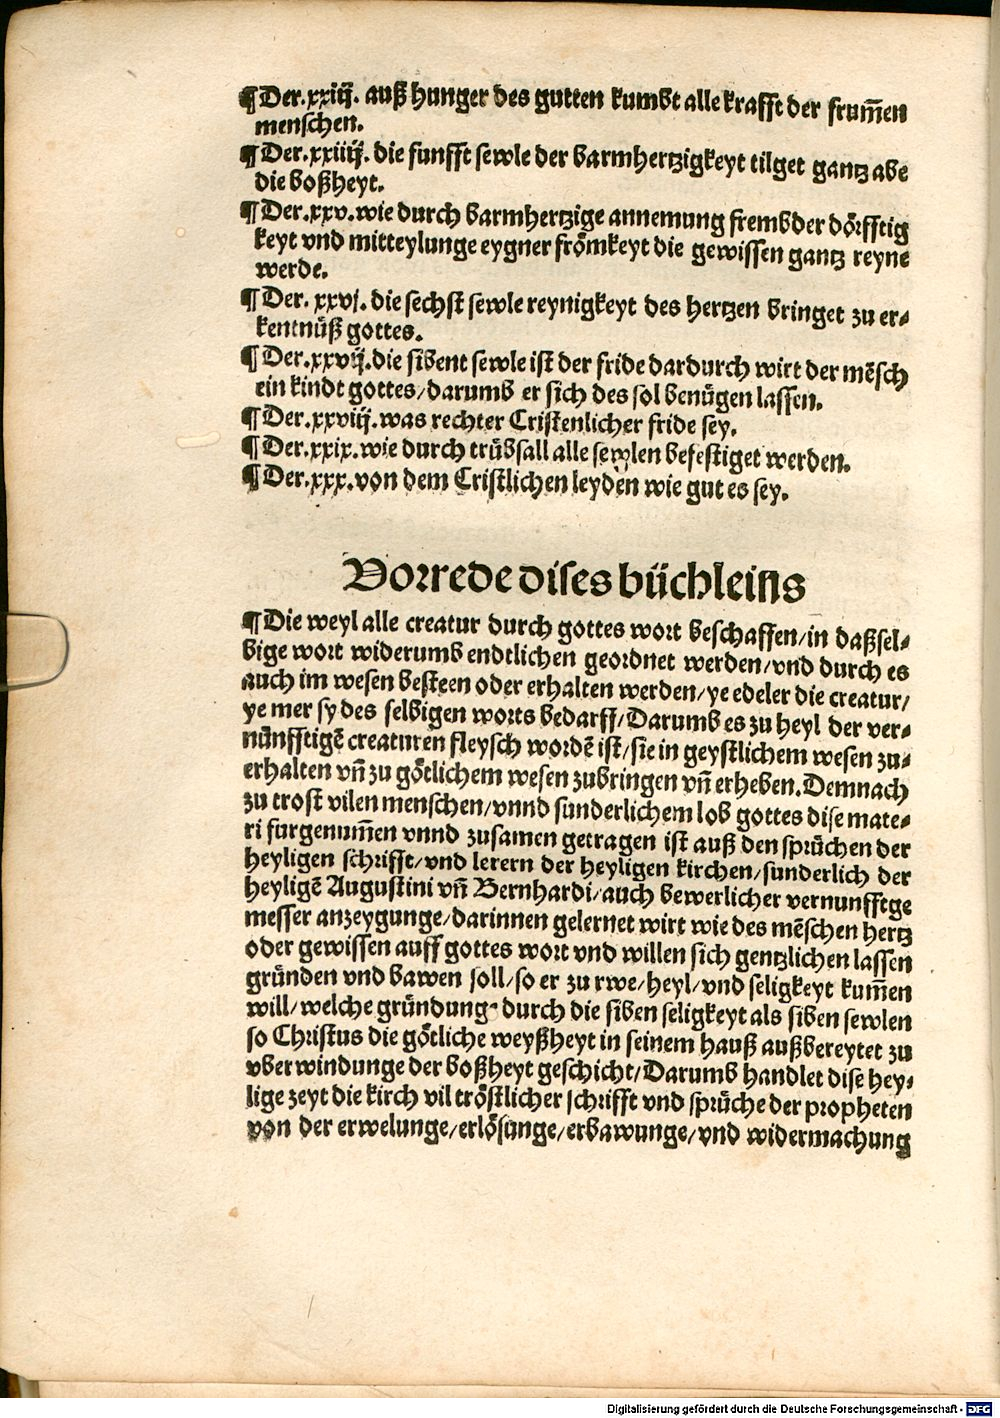 ¶Der.xxiij. auß hunger des gutten kumbt alle krafft der frum̃en
menschen.
¶Der.xxiiij. die funfft sewle der barmhertzigkeyt tilget gantz abe
die boßheyt.
¶Der.xxv.wie durch barmhertzige annemung frembder dörfftig
keyt vnd mitteylunge eygner frömkeyt die gewissen gantz reyne
werde.
¶Der. xxvj. die sechst sewle reynigkeyt des hertzen bringet zu er⸗
kentnüß gottes.
¶Der.xxvij.die sibent sewle ist der fride dardurch wirt der mẽsch
ein kindt gottes/darumb er sich des sol benügen lassen.
¶Der.xxviij.was rechter Cristenlicher fride sey.
¶Der.xxix.wie durch trübsall alle sewlen befestiget werden.
¶Der.xxx.von dem Cristlichen leyden wie gut es sey.
Vorrede dises büchleins
¶Die weyl alle creatur durch gottes wort beschaffen/in daßsel⸗
bige wort widerumb endtlichen geordnet werden/vnd durch es
auch im wesen besteen oder erhalten werden/ye edeler die creatur/
ye mer sy des selbigen worts bedarff/Darumb es zu heyl der ver⸗
nünfftigẽ creaturen fleysch wordẽ ist/sie in geystlichem wesen zu⸗
erhalten vñ zu götlichem wesen zubringen vñ erheben.Demnach
zu trost vilen menschen/vnnd sunderlichem lob gottes dise mate⸗
ri furgenum̃en vnnd zusamen getragen ist auß den sprüchen der
heyligen schrifft/vnd lerern der heyligen kirchen/sunderlich der
heyligẽ Augustini vñ Bernhardi/auch bewerlicher vernunfftge
messer anzeygunge/darinnen gelernet wirt wie des mẽschen hertz
oder gewissen auff gottes wort vnd willen sich gentzlichen lassen
gründen vnd bawen soll/so er zu rwe/heyl/vnd seligkeyt kum̃en
will/welche gründung durch die siben seligkeyt als siben sewlen
so Christus die götliche weyßheyt in seinem hauß außbereytet zu
vberwindunge der boßheyt geschicht/Darumb handlet dise hey⸗
lige zeyt die kirch vil tröstlicher schrifft vnd sprüche der propheten
von der erwelunge/erlösunge/erbawunge/vnd widermachung
Digitalisierung gefördert durch die Deutsche Forschungsgemeinschaft - DFG